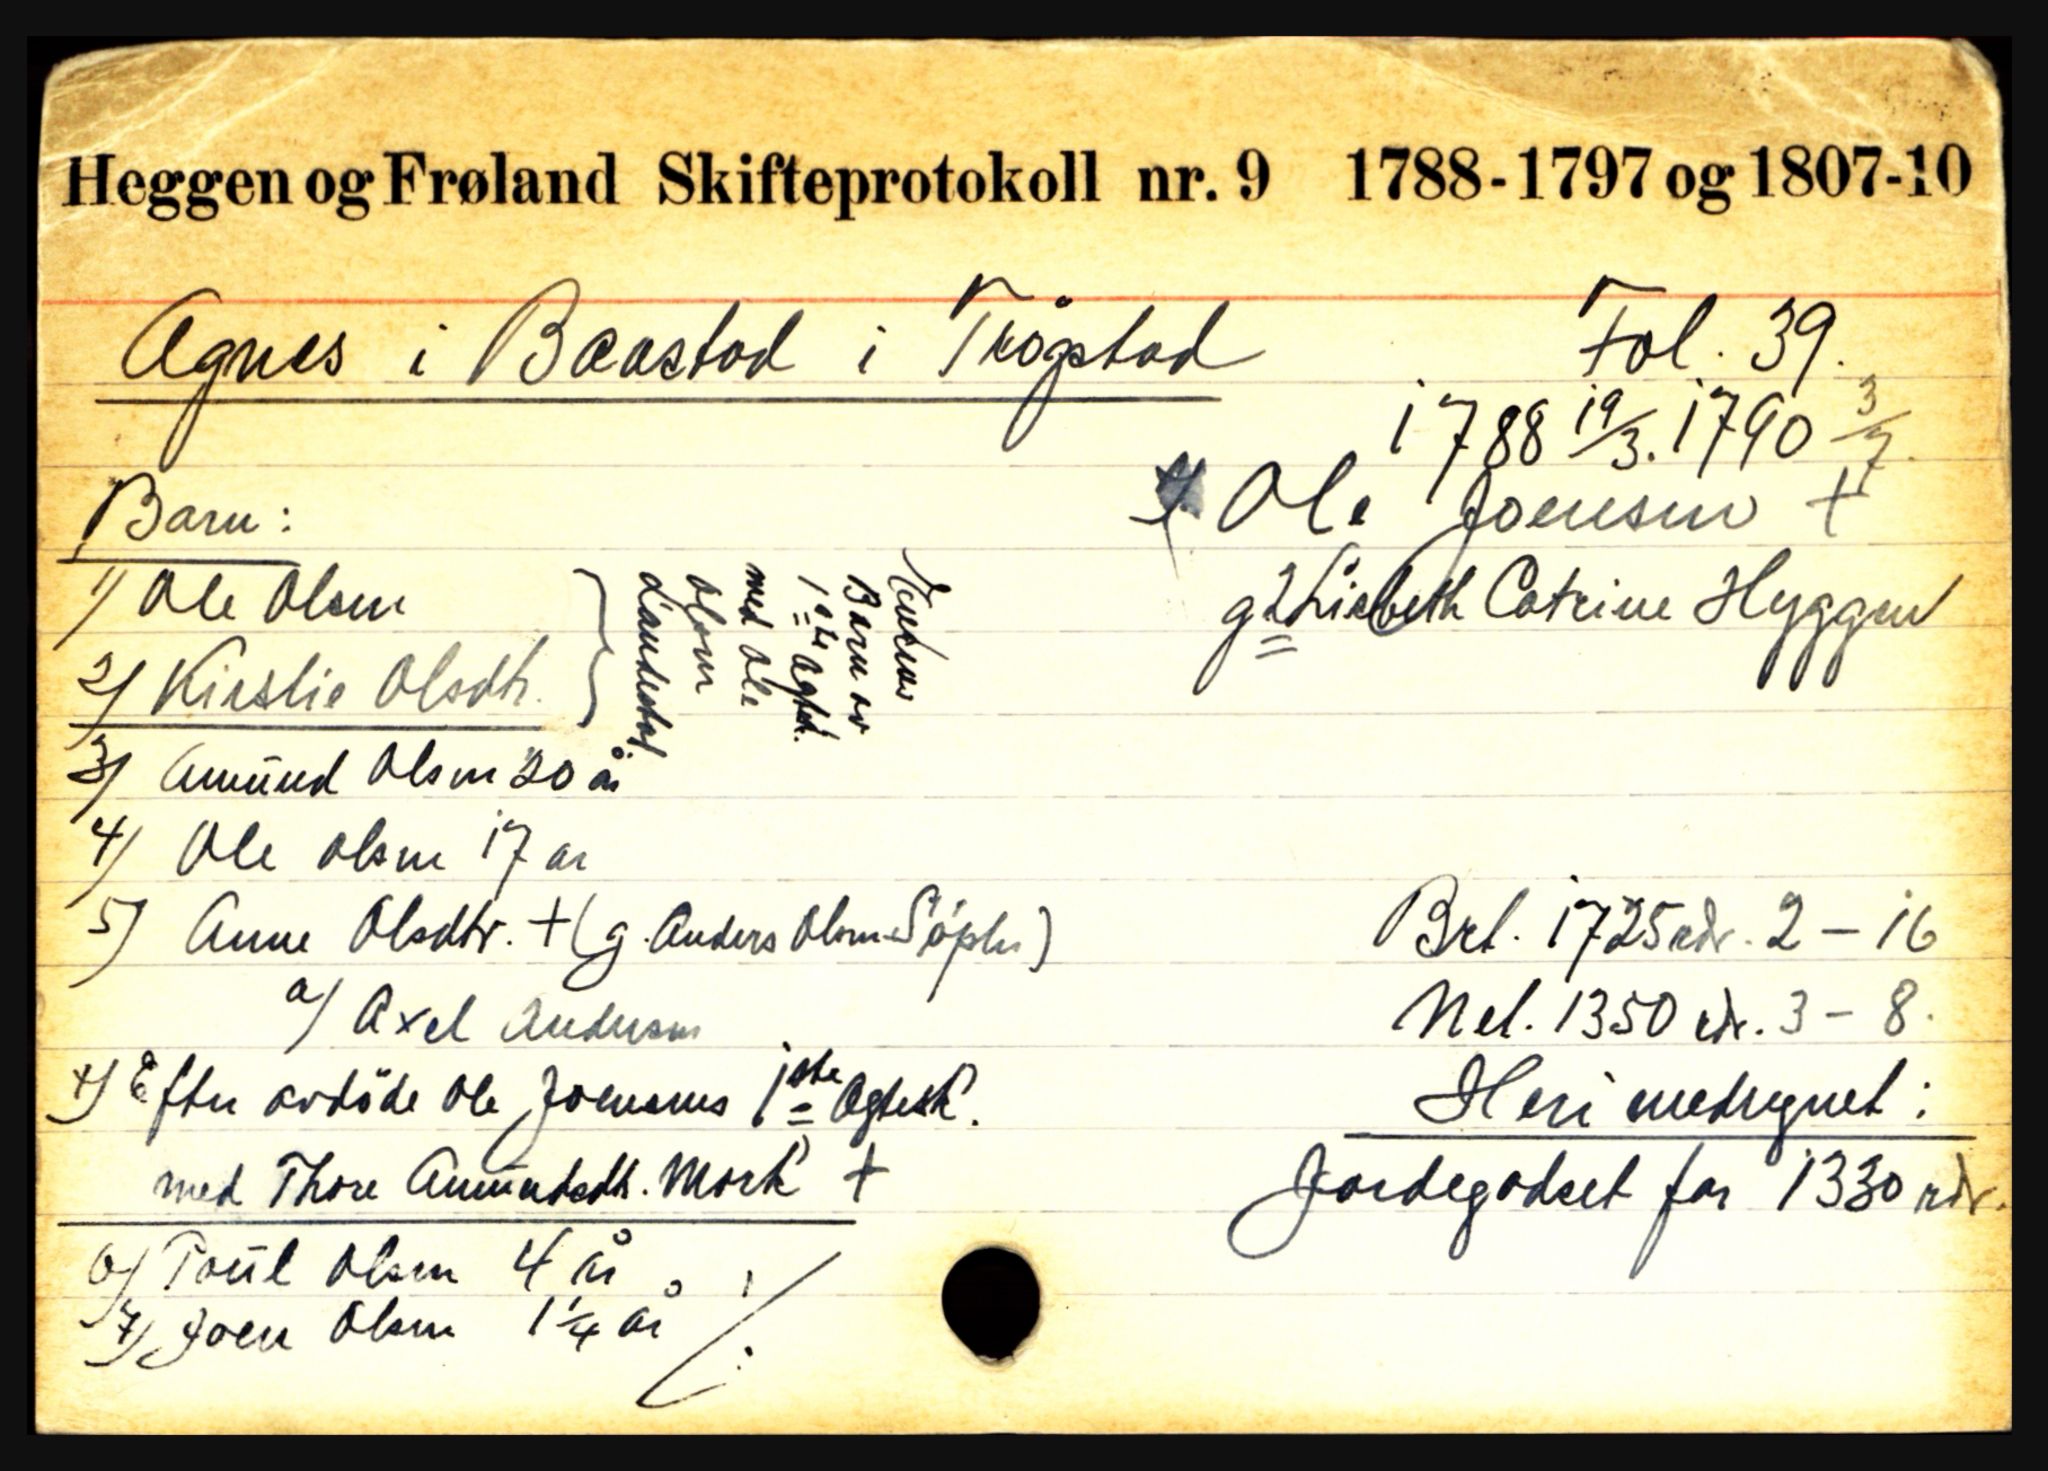 Heggen og Frøland Skifteprotokoll nr. 9 1788-1797 og 1807-10
Agnes i Baastad i Trøgstad Fol. 39.
1788 19/3. 1790 3/7.
Ole Joensen +
g 2 Lisbeth Catrine Hyggen
Barn:
1) Ole Olsen
2) Kirstie Olsdtr.
Enkens
Barn av
1ste Ægtesk.
med Ole
Olsen
3) Amund Olsen 20 år
4) Ole Olsen 17 år
5) Anne Olsdtr. + (g. Anders Olsen )
a) Axel Andersen
+) Efter avdøde Ole Joensens 1ste Ægtesk.
med Thore Amundsdtr. Mork +
6) Poul Olsen 4 år
7) Joen Olsen 1 1/4 år
Brt. 1725 rdr. 2 - 16
Net. 1350 rdr. 3 - 8.
Heri medregnet:
Jordegodset for 1330 rdr.